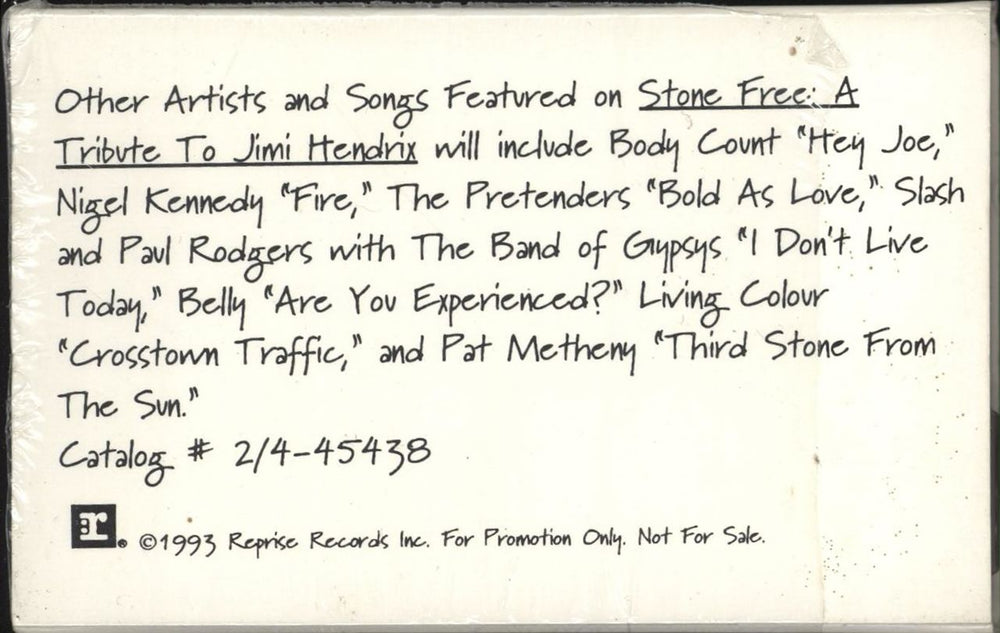 Other Artists and Songs Featured on Stone Free: A
Tribute To Jimi Hendrix will include Body Count "Hey Joe,"
Nigel Kennedy "Fire," The Pretenders "Bold As Love," Slash
and Paul Rodgers with The Band of Gypsys "I Don't Live
Today," Belly "Are You Experienced?" Living Colour
"Crosstown Traffic," and Pat Metheny "Third Stone From
The Sun."
Catalog # 2/4-45438
r ©1993 Reprise Records Inc. For Promotion Only. Not For Sale.